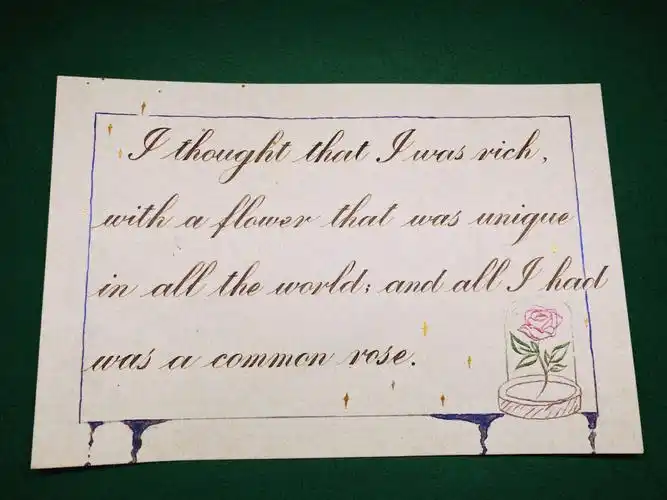 I thought that I was rich,
with a flower that was unique
in all the world; and all I had
was a common rose.